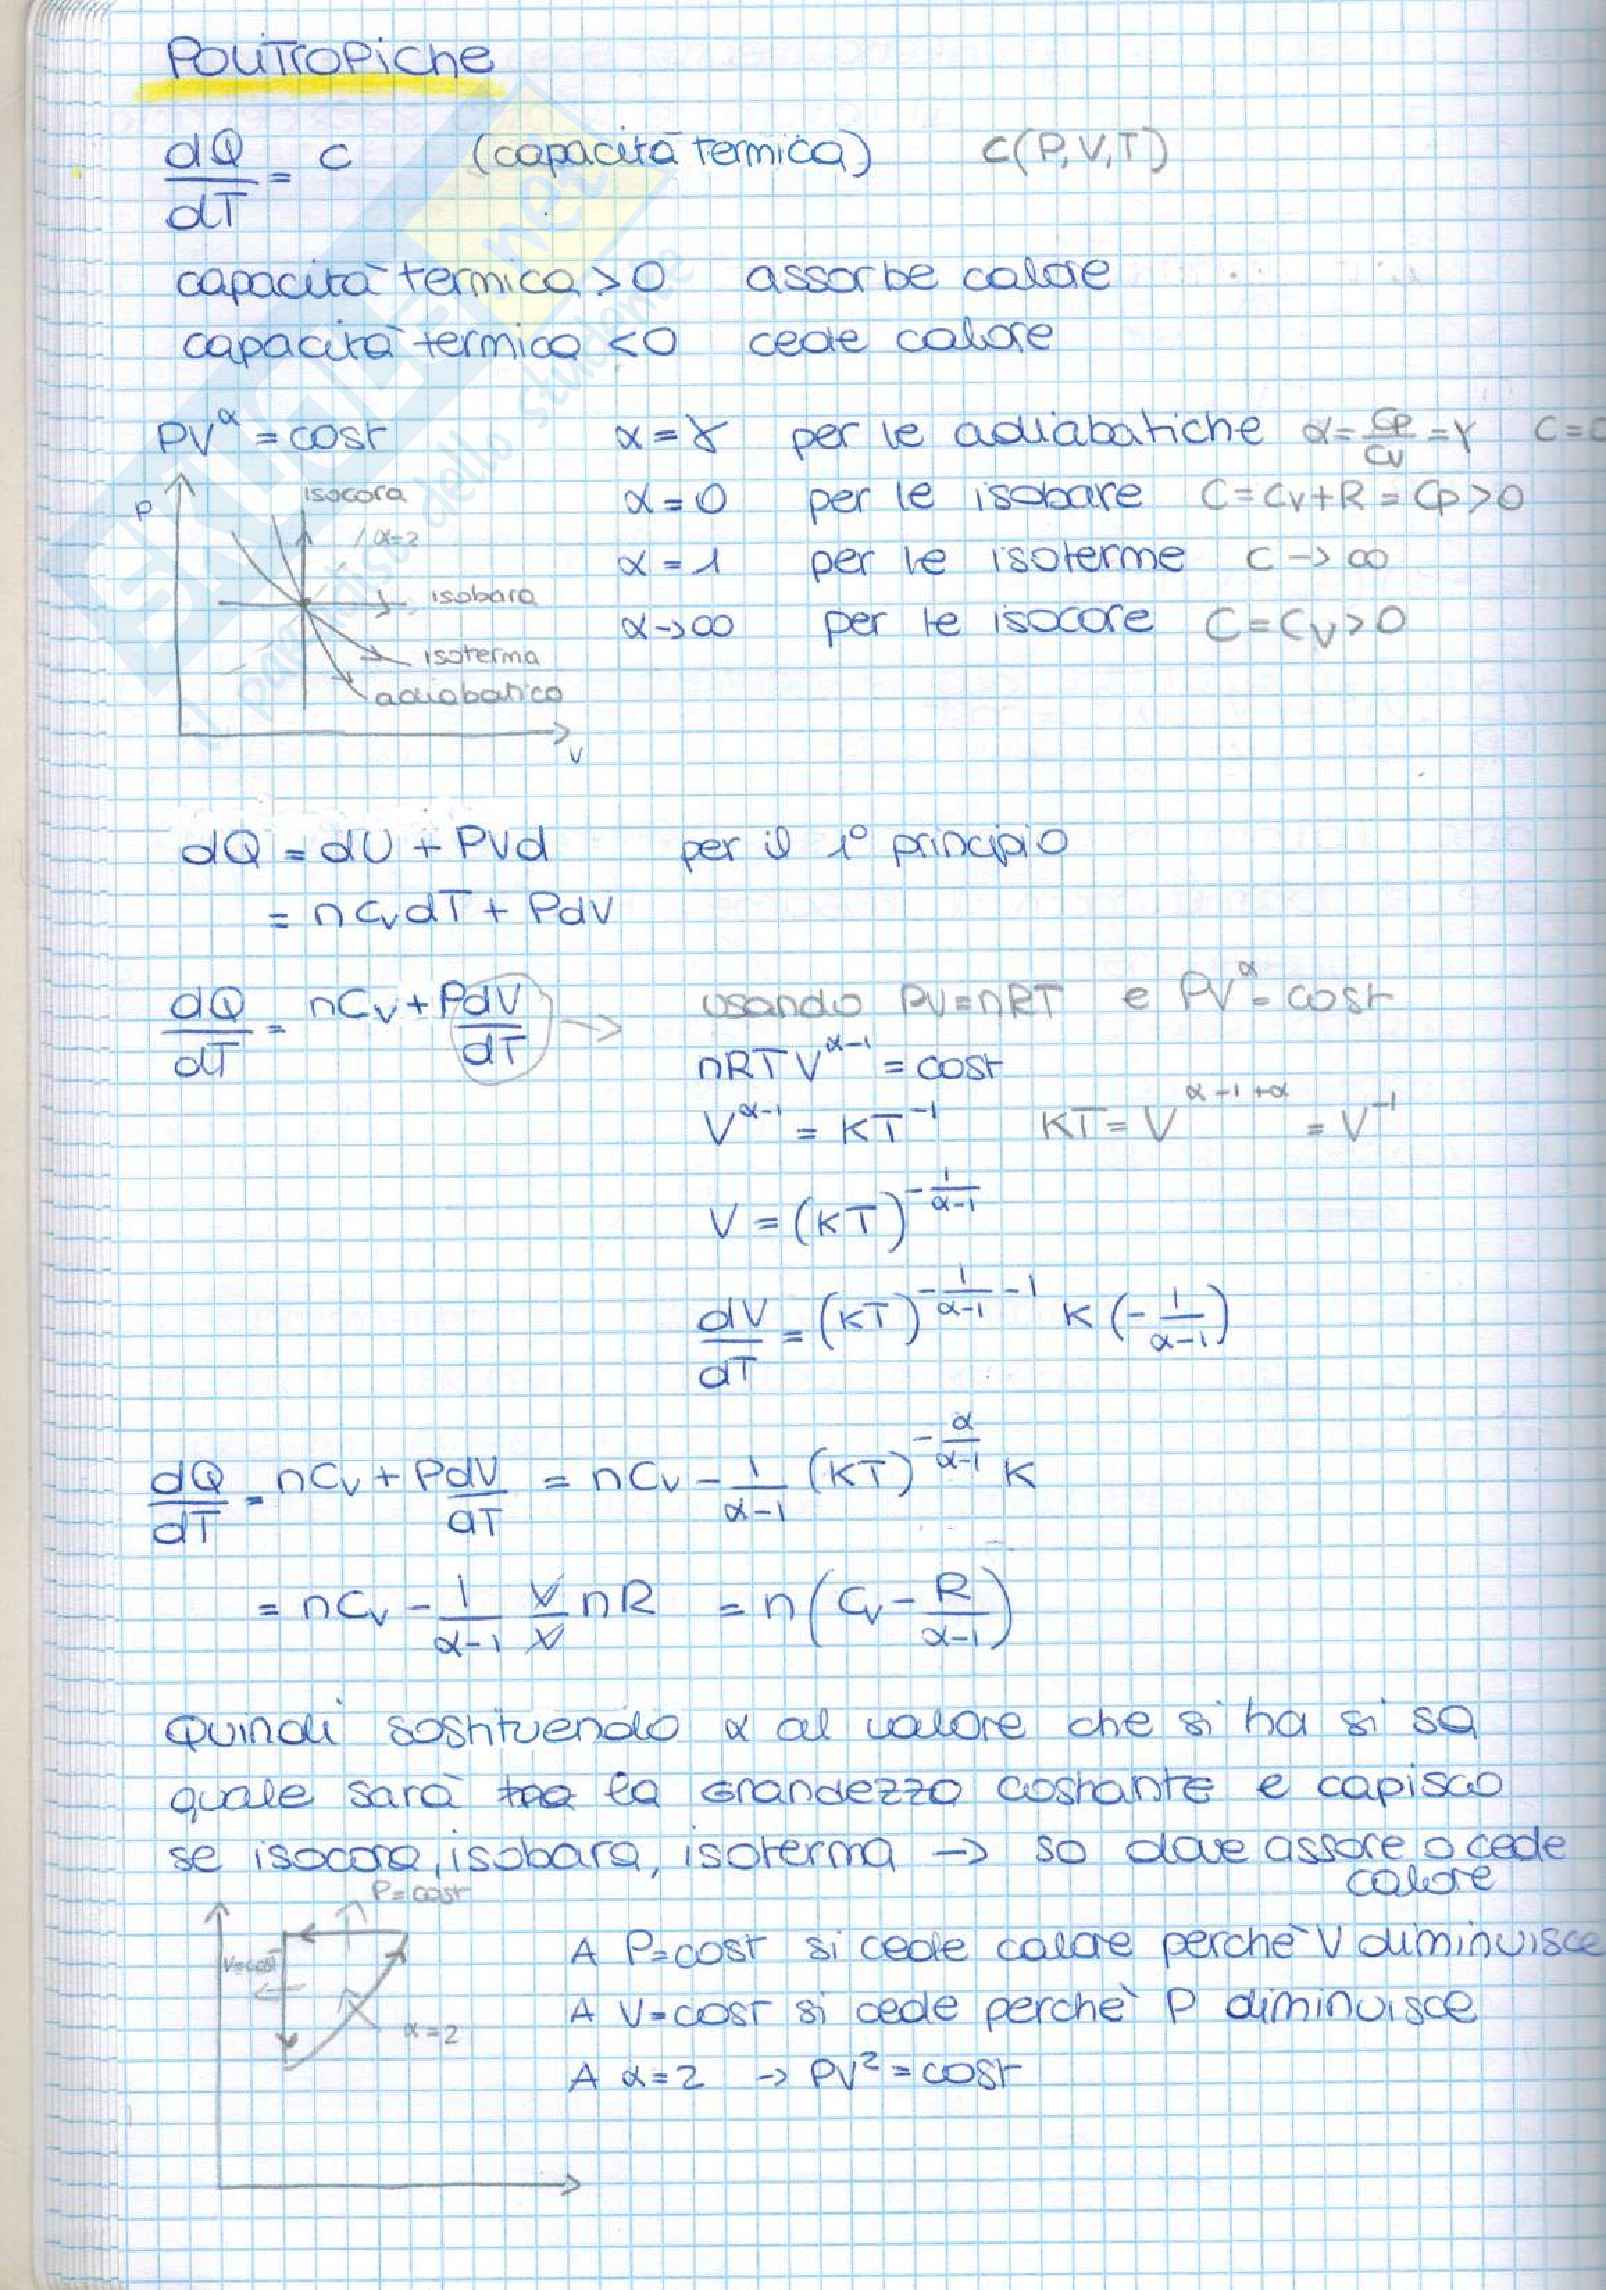 POLITROPICHE
dQ/dT = C (capacità termica) C(P,V,T)
capacità termica > 0 assorbe calore
capacità termica < 0 cede calore
PV^α = cost α = γ per le adiabatiche α = Cp/Cv = γ
α = 0 per le isobare C = Cv + R = Cp > 0
α = 1 per le isoterme C → ∞
α → ∞ per le isocore C = Cv > 0
P
isocora
α=2
isobara
isoterma
adiabatica
V
dQ = dU + PVd per il 1° principio
= nCvdT + PdV
dQ/dT = nCv + PdV/dT → usando PV = nRT e PV^α = cost
nRTV^(α-1) = cost
V^(α-1) = KT^-1 KT = V^(α-1+α) = V^-1
V = (KT)^(-1/(α-1))
dV/dT = (KT)^(-1/(α-1) -1) K (-1/(α-1))
dQ/dT = nCv + PdV/dT = nCv - 1/(α-1) (KT)^(-α/(α-1)) K
= nCv - 1/(α-1) V/V nR = n(Cv - R/(α-1))
Quindi sostituendo α al valore che si ha si sa
quale sarà la grandezza costante e capisco
se isocora, isobara, isoterma → so dove assore o cede
calore
P=cost
V=cost
α=2
A P=cost si cede calore perchè V diminuisce
A V=cost si cede perchè P diminuisce
A α=2 → PV² = cost
SKUOLA.net
il paradiso dello studente